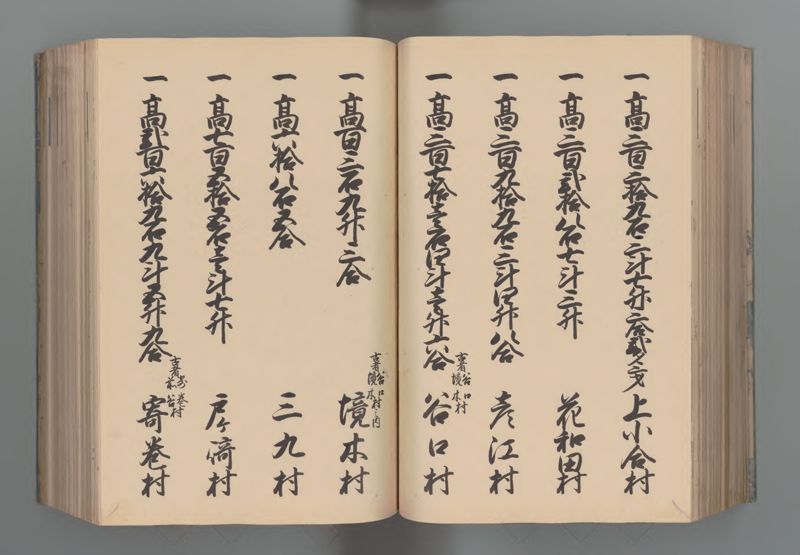 一 高三百三拾九石三斗七升三合弐勺 上小合村
一 高三百弐拾八石七斗三升 花和田村
一 高三百九拾九石三斗四升八合 彦江村
一 高三百七拾壱石四斗壱升六合 谷口村
古者 谷口村
一 高百三石九升三合 境木村
古者 谷口村之内
一 高六拾八石五合 三九村
一 高七百五拾五石壱斗七升 戸ケ崎村
一 高弐百六拾九石九斗五升九合 寄巻村
古者